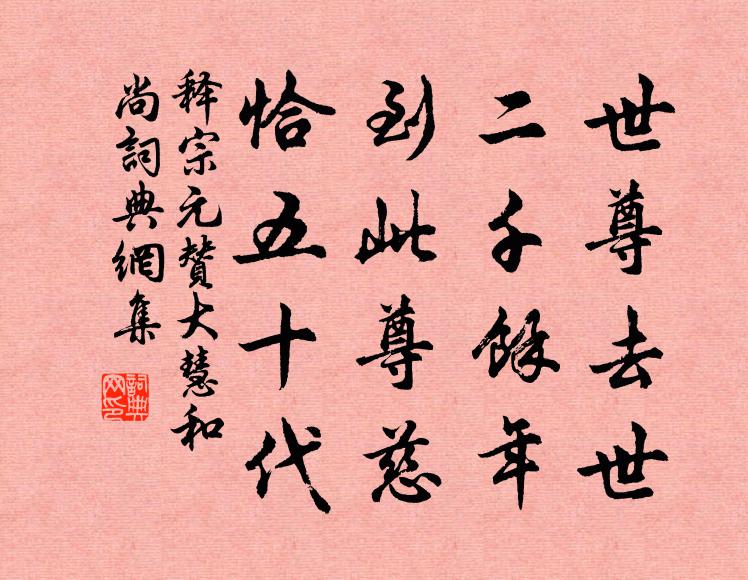 世尊去世
二千餘年
到此尊慈
恰五十代
释宗元赞大慧和
尚詞典網集
詞典
网印